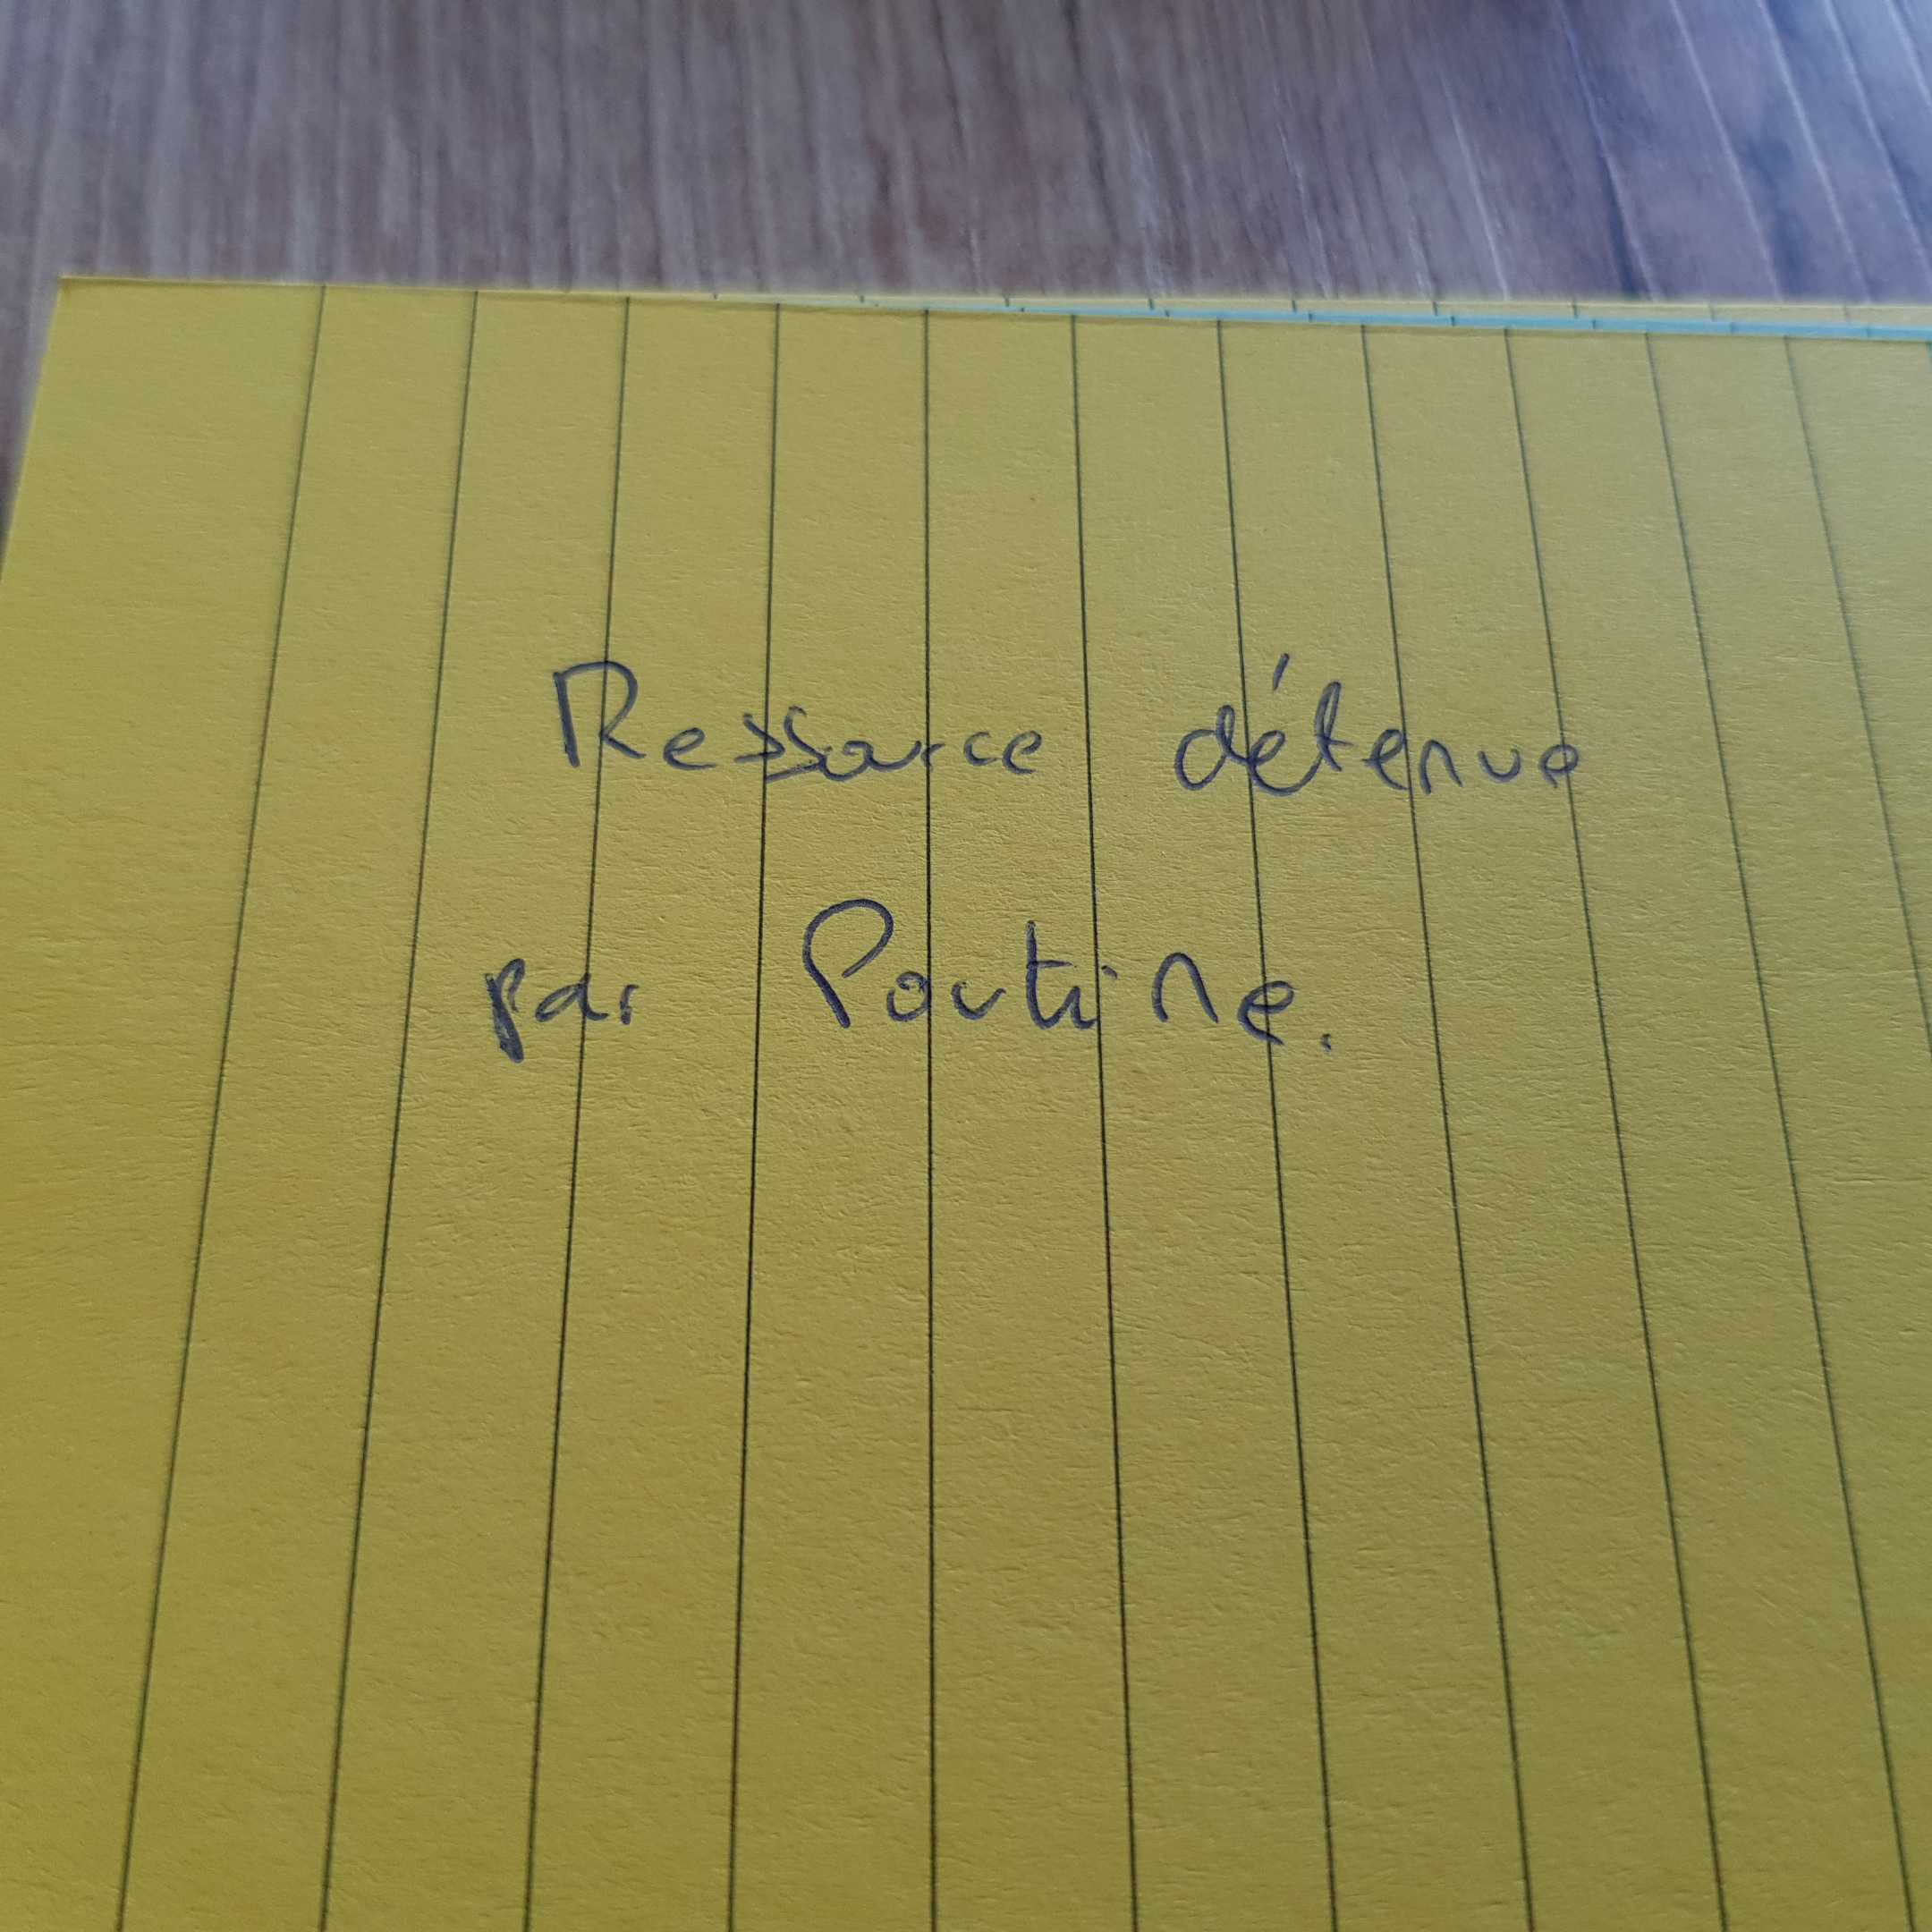 Ressource détenue
par Poutine.